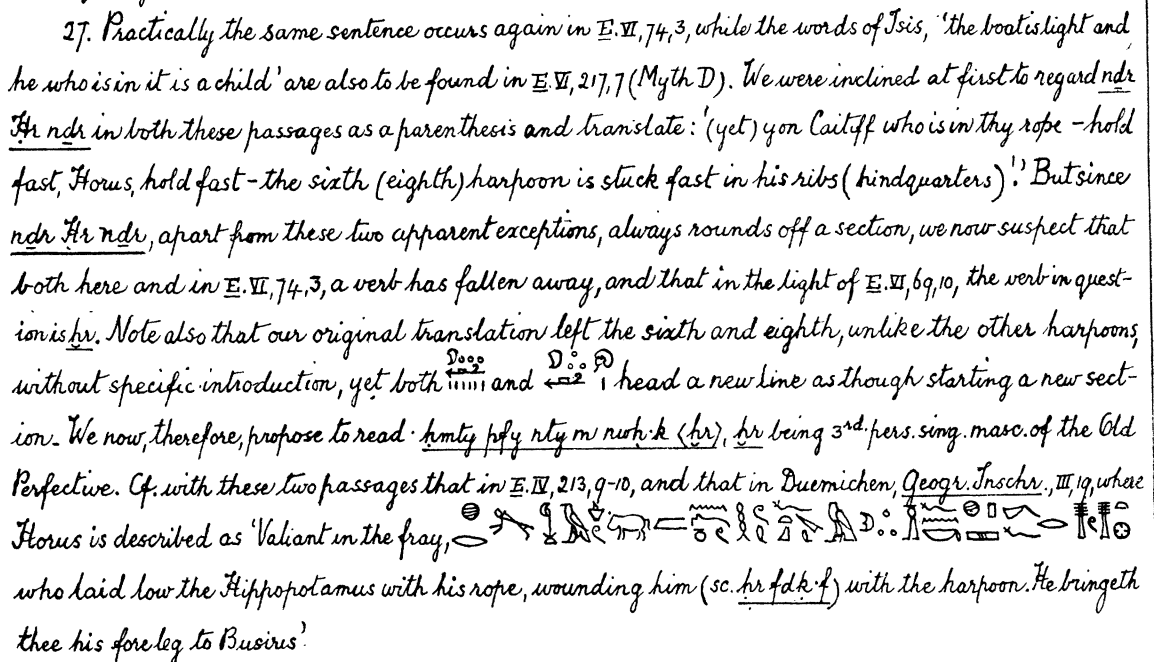 27. Practically the same sentence occurs again in E. VI, 74, 3, while the words of Isis, 'the boat is light and
he who is in it is a child' are also to be found in E. VI, 217, 7 (Myth D). We were inclined at first to regard nḏr
Ḥr nḏr in both these passages as a parenthesis and translate: '(yet) yon Caitiff who is in thy rope – hold
fast, Horus, hold fast – the sixth (eighth) harpoon is stuck fast in his ribs (hindquarters)!' But since
nḏr Ḥr nḏr, apart from these two apparent exceptions, always rounds off a section, we now suspect that
both here and in E. VI, 74, 3, a verb has fallen away, and that in the light of E. VI, 69, 10, the verb in quest-
ion is ḫr. Note also that our original translation left the sixth and eighth, unlike the other harpoons,
without specific introduction, yet both and head a new line as though starting a new sect-
ion. We now, therefore, propose to read ḥmty pfy nty m nwḥ·k ⟨ḫr⟩, ḫr being 3rd. pers. sing. masc. of the Old
Perfective. Cf. with these two passages that in E. IV, 213, 9-10, and that in Duemichen, Geogr. Inschr., III, 19, where
Horus is described as 'Valiant in the fray,
who laid low the Hippopotamus with his rope, wounding him (sc. ḥr fdḳ·f) with the harpoon. He bringeth
thee his foreleg to Busiris'.